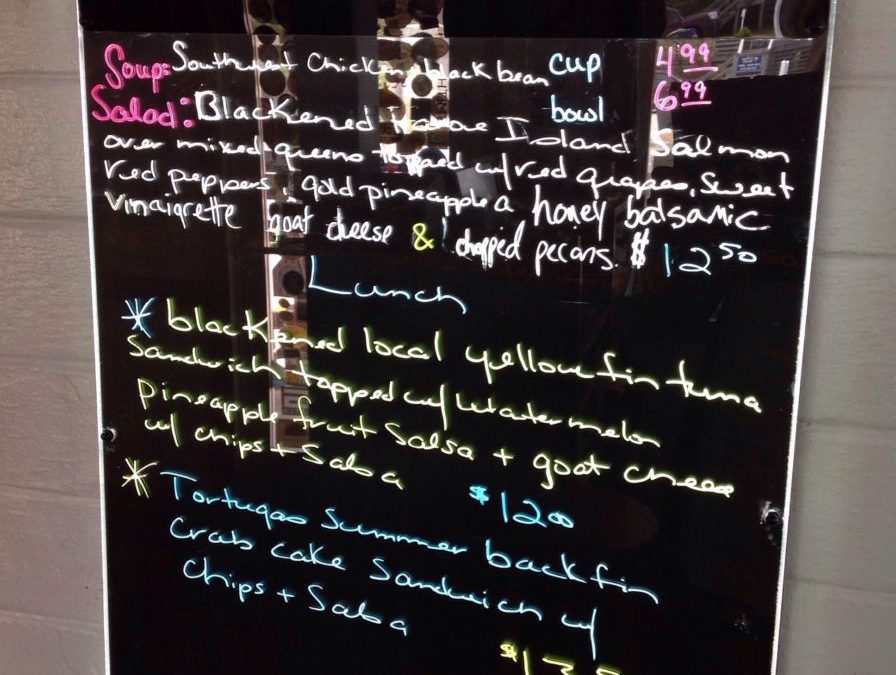 Soup: Southwest Chicken, black bean cup 4.99
bowl 6.99
Salad: Blackened Island Salmon
over mixed greens topped w/ red grapes, sweet
red peppers, gold pineapple a honey balsamic
vinaigrette goat cheese & chopped pecans. $12.50
Lunch
* blackened local yellowfin tuna
Sandwich topped w/ watermelon
pineapple fruit Salsa + goat cheese
w/ chips + Salsa
$12.00
* Tortugas Summer backfin
Crab cake Sandwich w/
chips + Salsa